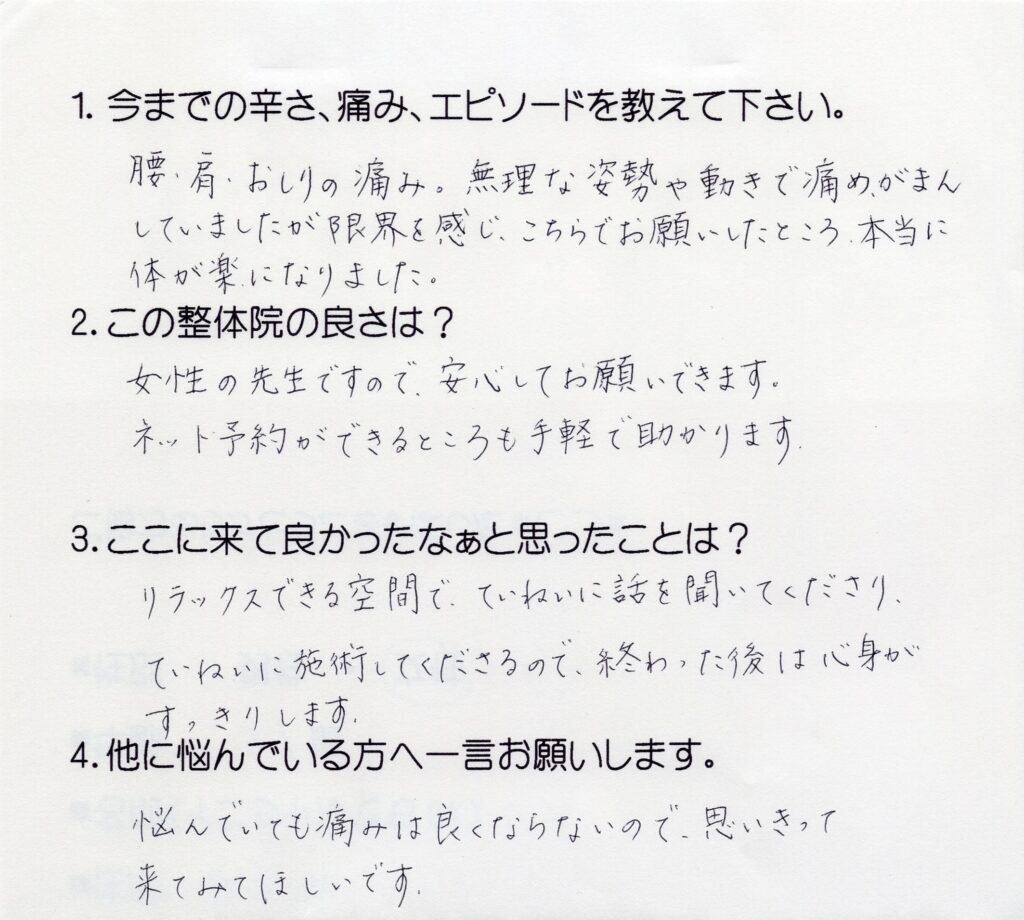 1. 今までの辛さ、痛み、エピソードを教えて下さい。
腰・肩・おしりの痛み。無理な姿勢や動きで痛め、がまん
していましたが限界を感じ、こちらでお願いしたところ、本当に
体が楽になりました。
2. この整体院の良さは？
女性の先生ですので、安心してお願いできます。
ネット予約ができるところも手軽で助かります。
3. ここに来て良かったなぁと思ったことは？
リラックスできる空間で、ていねいに話を聞いてくださり、
ていねいに施術してくださるので、終わった後は心身が
すっきりします。
4. 他に悩んでいる方へ一言お願いします。
悩んでいても痛みは良くならないので、思いきって
来てみてほしいです。